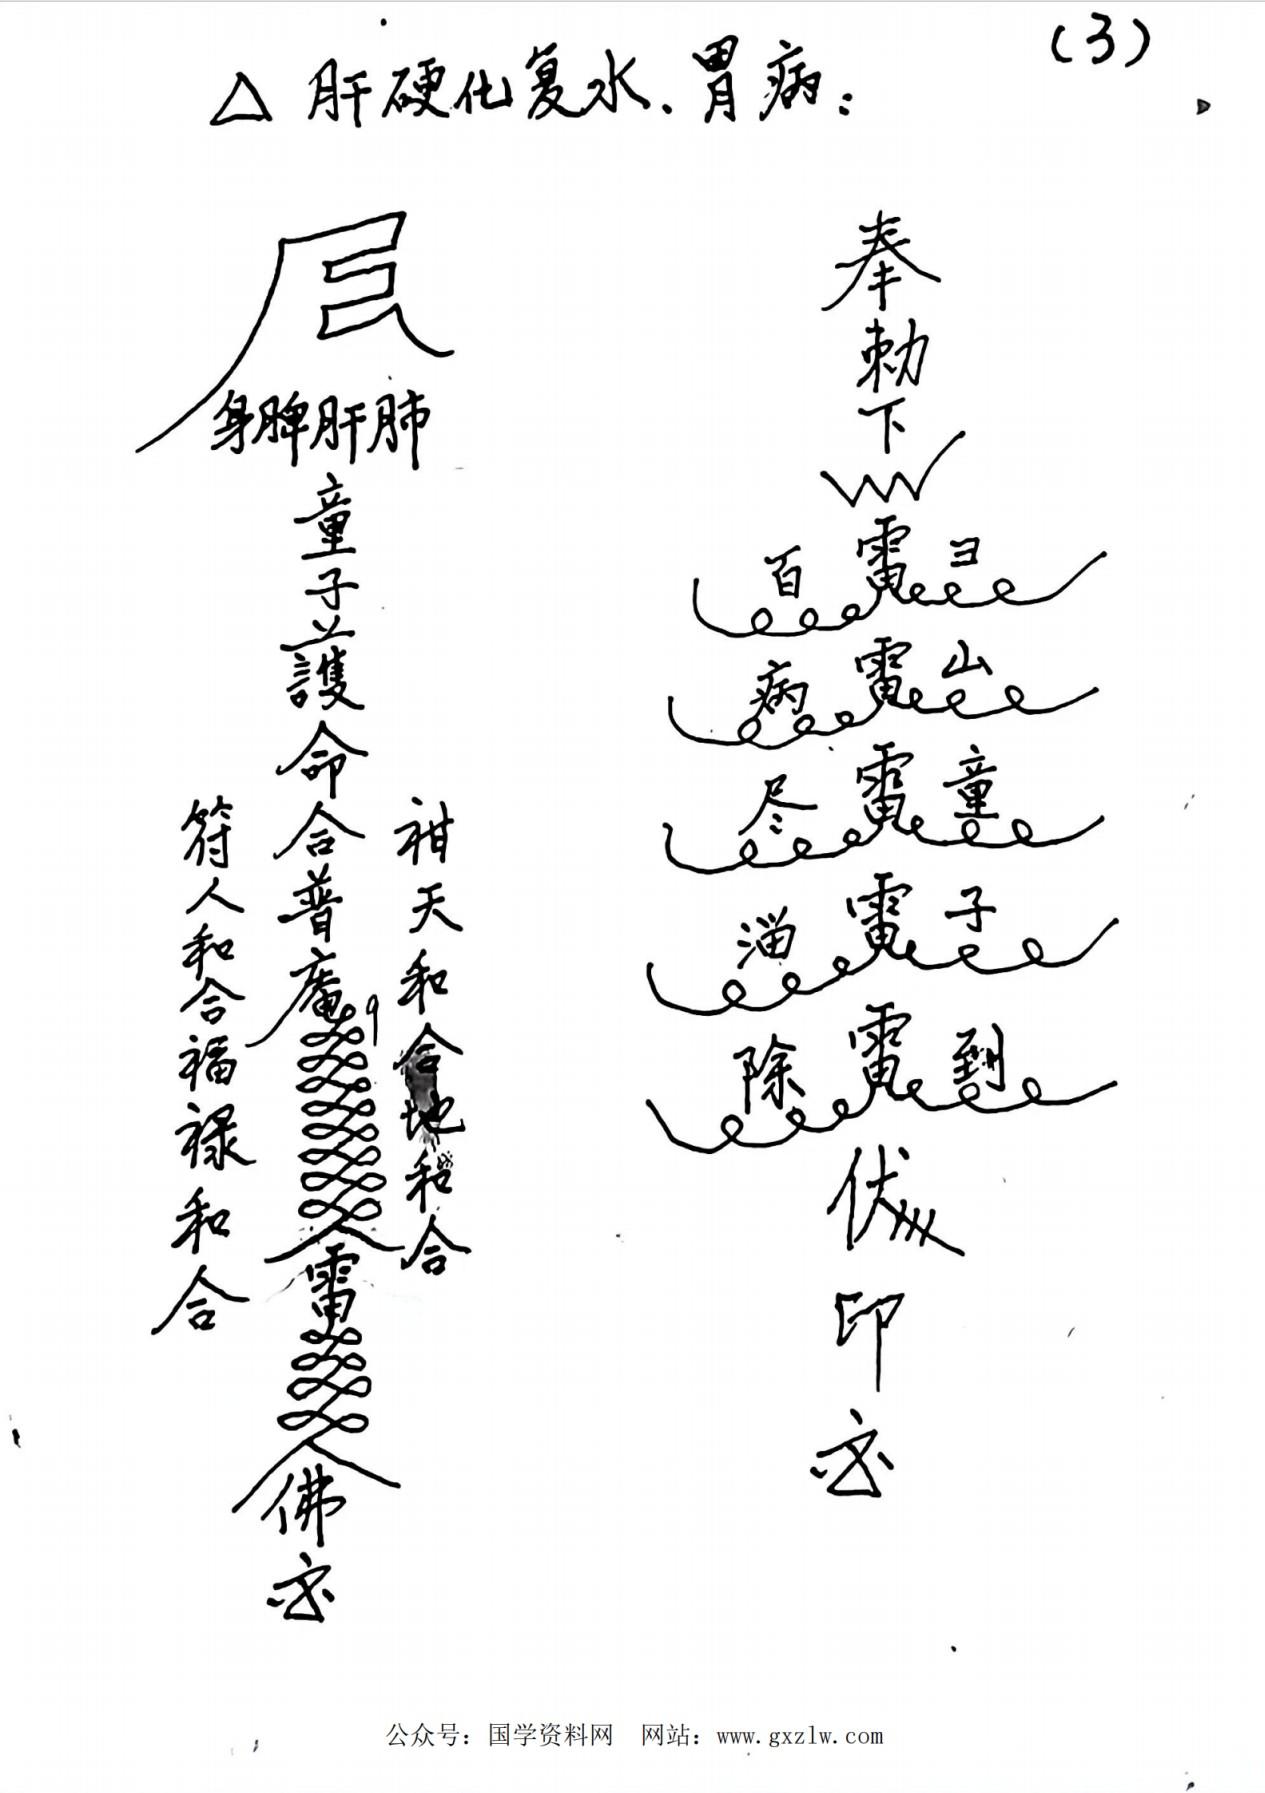 (3)
△ 肝硬化复水、胃病:
奉
勅
下
百 雷 ヨ
病 雷 山
尽 雷 童
消 雷 子
除 雷 到
伏
印
身脾肝肺
童
子
護
命
合
普
庵
雷
佛
天和合地和合
符人和合福禄和合
公众号：国学资料网 网站：www.gxzlw.com